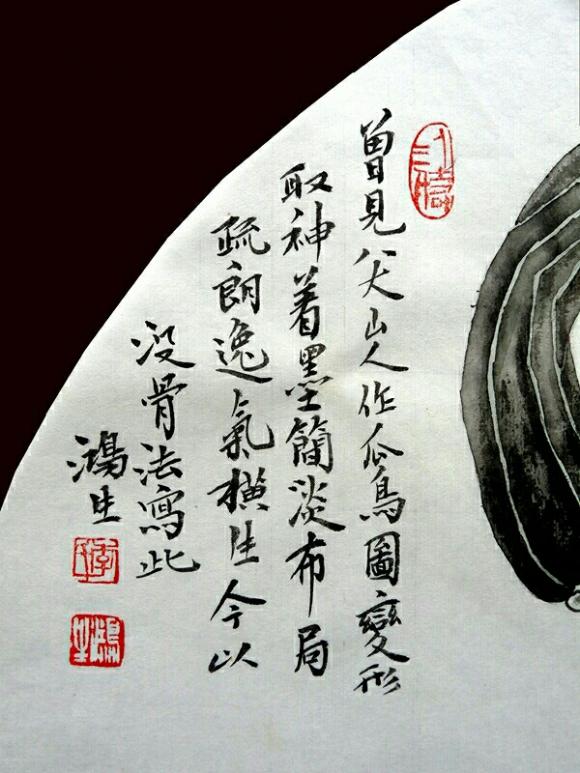 曾見八大山人作瓜鳥圖變形
取神着墨簡淡布局
疏朗逸氣橫生今以
没骨法寫此
鴻生
鴻生